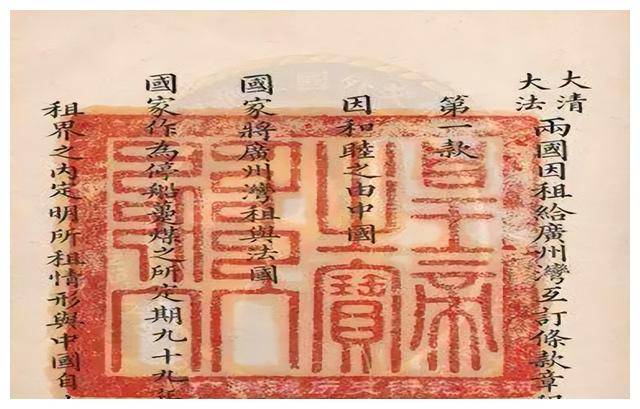 大清
大法
兩國因租給廣州灣互訂條款章
第一款
因和睦之由中國
國家將廣州灣租與法國
國家作為停船躉煤之所定期九十九
租界之內定明所租情形與中國自
皇帝
之寶